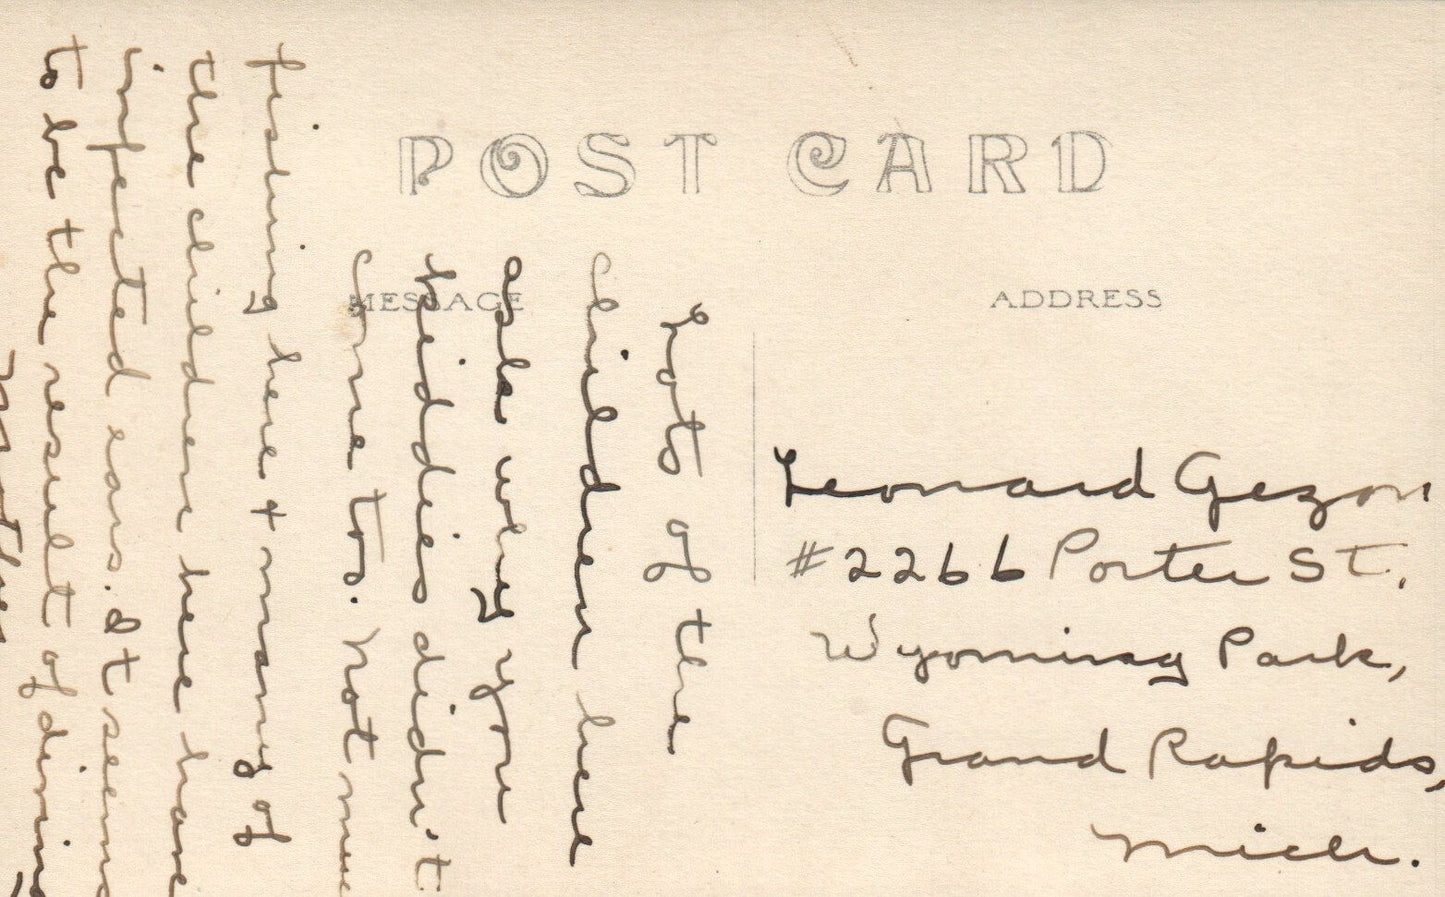 POST CARD
MESSAGE
ADDRESS
Lots of the
children here
ask why you
kiddies didn't
come too. Not much
fishing here + many of
the children here have
infected ears. It seems
to be the result of diving
Mother
Leonard Gezon
#2266 Porter St.,
Wyoming Park,
Grand Rapids,
Mich.